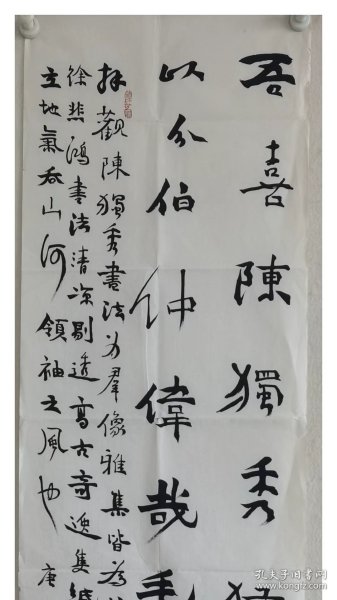 吾喜陳獨秀
以分伯仲偉哉
拜觀陳獨秀書法為群像雅集皆為
徐悲鴻書法清深剔透高古奇逸隻
立地氣吞山河領袖之風也 唐
孔夫子旧书网
www.kongfz.com